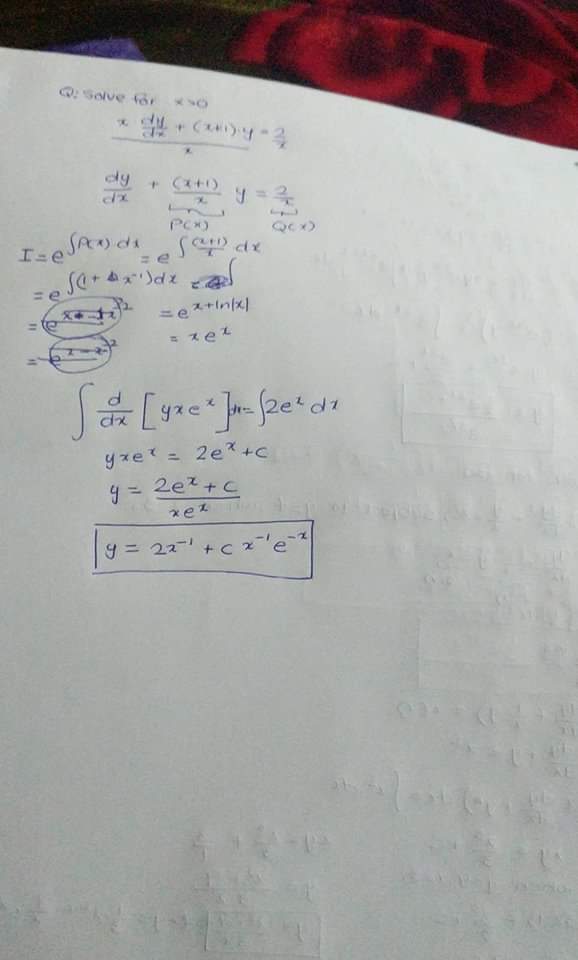 Q: Solve for x>0
x · dy/dx + (x+1)·y = 2/x
x
dy/dx + (x+1)/x y = 2/x
P(x) Q(x)
I = e^∫P(x) dx = e^∫(x+1)/x dx
= e^∫(1 + x⁻¹)dx = ∫
= e = e^x+ln|x|
= e = xe^x
∫ d/dx [yxe^x] dx = ∫2e^x dx
yxe^x = 2e^x + c
y = 2e^x + c / xe^x
y = 2x⁻¹ + c x⁻¹e^-x